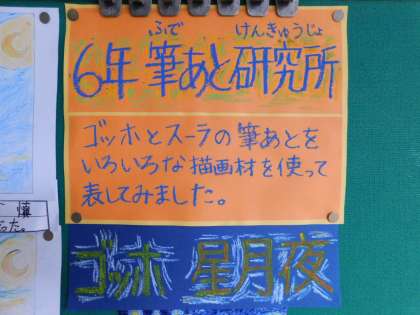 ふで けんきゅうじょ
6年 筆あと研究所
ゴッホとスーラの筆あとを
いろいろな描画材を使って
表してみました。
ゴッホ 星月夜
った。